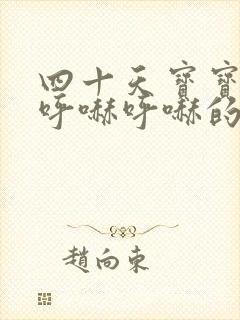 四十天寳寳
呼嚇呼嚇的
趙向東